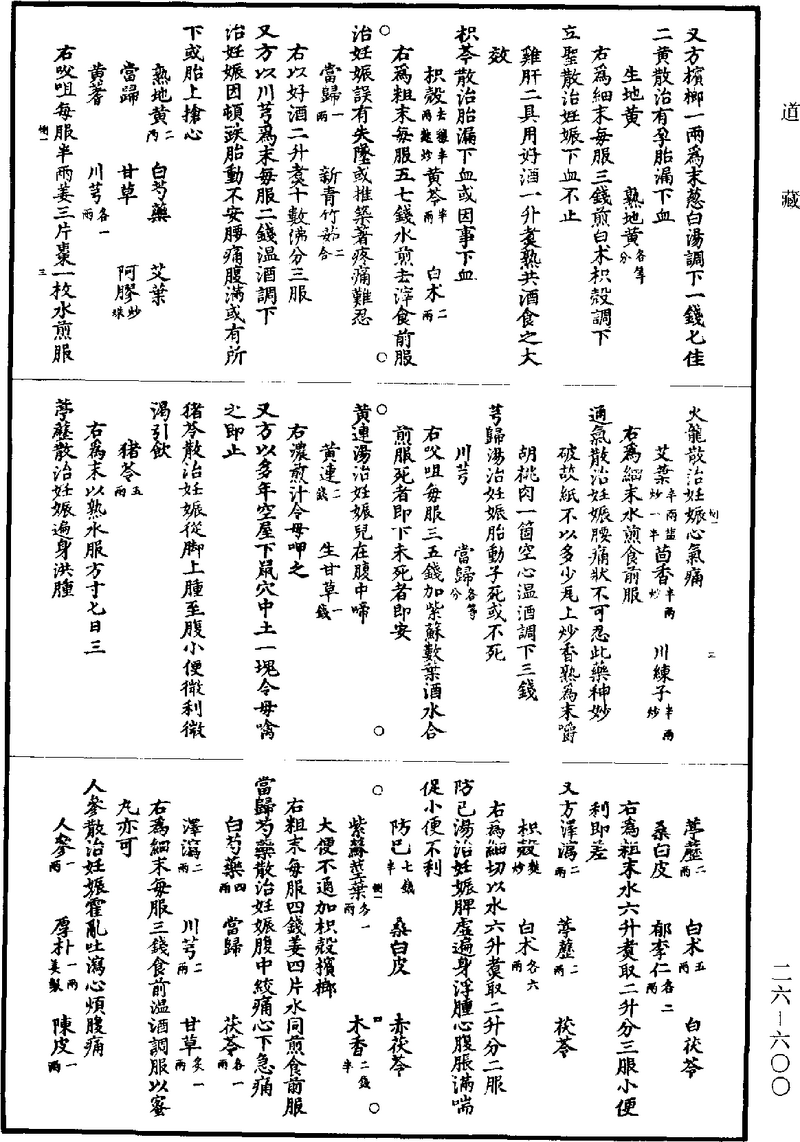 道藏
又方檳榔一兩爲末葱白湯調下一錢匕佳
二黄散治有孕胎漏下血
生地黄　熟地黄各等分
右爲細末每服三錢煎白术枳殻調下
立聖散治妊娠下血不止
雞肝二具用好酒一升煑熟共酒食之大
效
枳芩散治胎漏下血或因事下血
枳殻去穰半兩麩炒　黄芩半兩　白术二兩
右爲粗末每服五七錢水煎去滓食前服
治妊娠誤有失墜或推築著疼痛難忍
當歸一兩　新青竹茹二合
右以好酒二升煑十數沸分三服
又方以川芎爲末每服二錢温酒調下
治妊娠因頓躓胎動不安腰痛腹滿或有所
下或胎上搶心
熟地黄二兩　白芍藥　艾葉
當歸　甘草　阿膠炒珠
黄耆　川芎各一兩
右㕮咀每服半兩姜三片棗一枚水煎服
火龍散治妊娠心氣痛
艾葉半兩鹽炒一半　茴香半兩炒　川練子半兩炒
右爲細末水煎食前服
通氣散治妊娠腰痛狀不可忍此藥神妙
破故紙不以多少瓦上炒香熟爲末嚼
胡桃肉一箇空心温酒調下三錢
芎歸湯治妊娠胎動子死或不死
川芎　當歸各等分
右㕮咀每服三五錢加紫蘇數葉酒水合
煎服死者即下未死者即安
黄連湯治妊娠兒在腹中啼
黄連二錢　生甘草一錢
右濃煎汁令母呷之
又方以多年空屋下鼠穴中土一塊令母噙
之即止
猪苓散治妊娠從脚上腫至腹小便微利微
渴引飲
猪苓五兩
右爲末以熟水服方寸匕日三
葶藶散治妊娠遍身洪腫
葶藶二兩　白术五兩　白茯苓
桑白皮　郁李仁各二兩
右爲粗末水六升煑取二升分三服小便
利即差
又方澤瀉二兩　葶藶二兩　茯苓
枳殻麩炒　白术各六兩
右爲細切以水六升煑取二升分二服
防已湯治妊娠脾虚遍身浮腫心腹脹滿喘
促小便不利
防已七錢半　桑白皮　赤茯苓
紫蘇莖葉各一兩　木香二錢半
大便不通加枳殻檳榔
右粗末每服四錢姜四片水同煎食前服
當歸芍藥散治妊娠腹中絞痛心下急痛
白芍藥四兩　當歸　茯苓各一兩
澤瀉二兩　川芎二兩　甘草炙一兩
右爲細末每服三錢食前温酒調服以蜜
丸亦可
人參散治妊娠霍亂吐瀉心煩腹痛
人參一兩　厚朴一兩姜製　陳皮一兩
二六—六〇〇